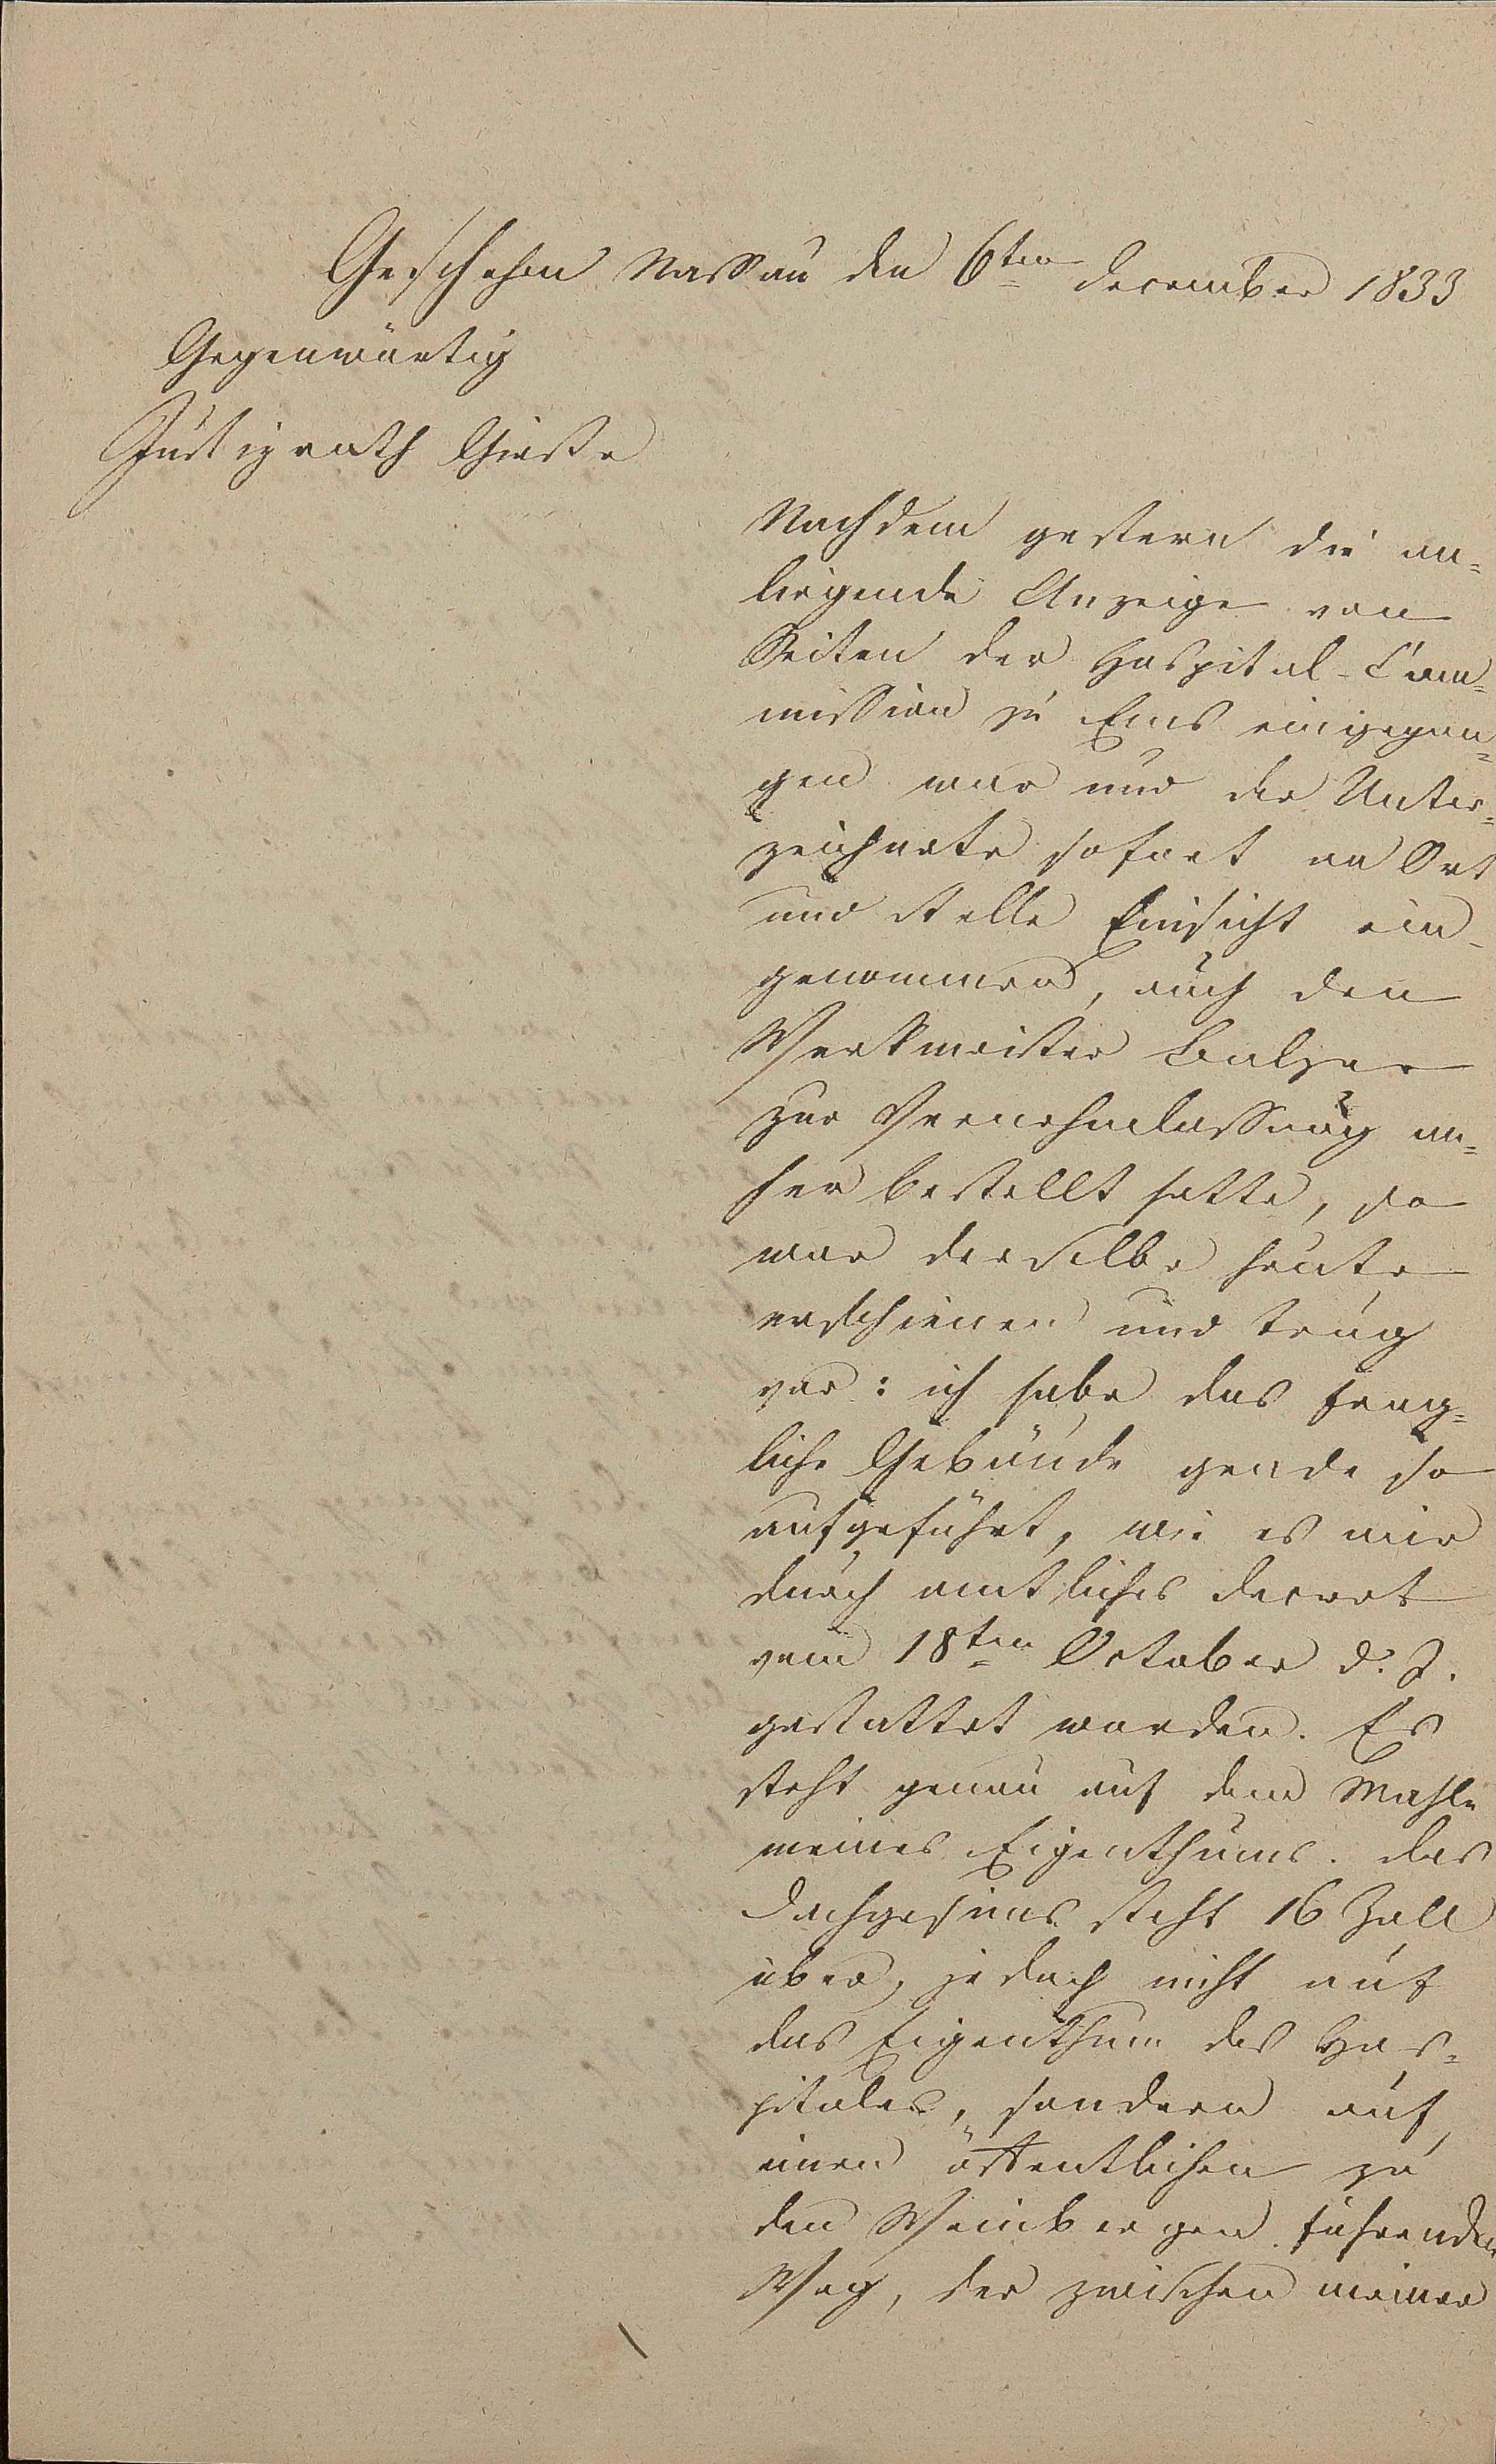 Geschehen Nassau den 6ten December 1833
Gegenwärtig
Justizrath Giesse
Nachdem gestern die an=
liegende Anzeige von
Seiten der Hospital-Com=
mission zu Ems eingegan=
gen war und der Unter=
zeichnete sofort an Ort
und Stelle Einsicht ein-
genommen, auch den
Werkmeister Balzer
zur Vernehmlassung an=
her bestellt hatte, so
war derselbe heute
erschienen und trug
vor: ich habe das frag=
liche Gebäude grade so
aufgeführt, wie es mir
durch amtliches Decret
vom 18ten October d. J.
gestattet worden. Es
steht genau auf dem Mahle
meines Eigenthums. Das
Dachgesims steht 16 Zoll
über, jedoch nicht auf
das Eigenthum des Hos=
pitales, sondern auf
einen öffentlichen zu
den Weinbergen führenden
Weg, der zwischen meiner